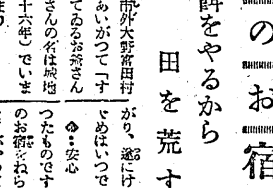 のお宿
餌をやるから
田を荒す
市外大野富田村
あいがつて「す
てゐるお爺さん
さんの名は城地
十六年）でいま
がり、遂にけ
ためはいつで
◇‥安心
つたものです
のお宿をねら